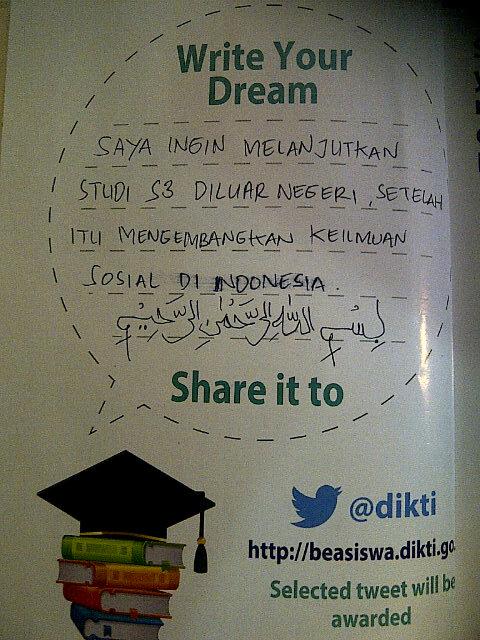 Write Your
Dream
SAYA INGIN MELANJUTKAN
STUDI S3 DILUAR NEGERI, SETELAH
ITU MENGEMBANGKAN KEILMUAN
SOSIAL DI INDONESIA.
بِسْمِ اللّٰهِ الرَّحْمٰنِ الرَّحِيْمِ
Share it to
@dikti
http://beasiswa.dikti.go.
Selected tweet will be
awarded